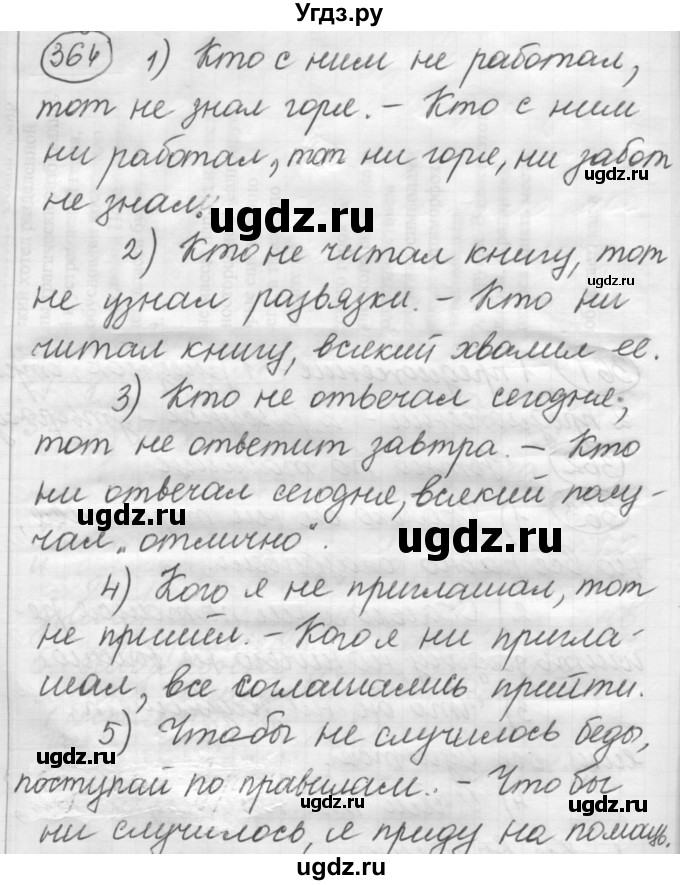 Угдз.ру
364 1) Кто с ним не работал,
тот не знал горя. – Кто с ним
ни работал, тот ни горя, ни забот
ugdz.ru
не знал.
ugdz.ru
2) Кто не читал книгу, тот
не узнал развязки. – Кто ни
читал книгу, всякий хвалил ее.
3) Кто не отвечал сегодня,
тот не ответит завтра. – Кто
ни отвечал сегодня, всякий полу-
чал „отлично“.
ugdz.ru
ugdz.ru
4) Кого я не приглашал, тот
не пришёл. – Кого я ни пригла-
шал, все соглашались прийти.
5) Чтобы не случилось беды,
ugdz.ru
поступай по правилам. – Что бы
ugdz.ru
ugdz.ru
ни случилось, я приду на помощь.
ugdz.ru